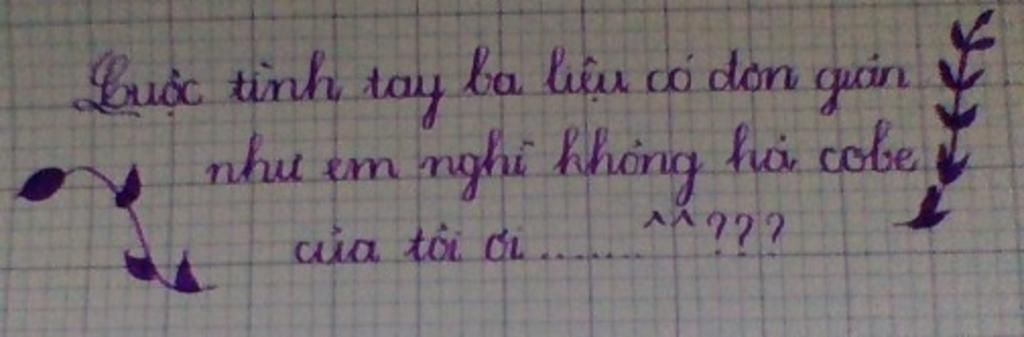 Cuộc tình tay ba liệu có đơn giản
như em nghĩ không hả cobe
của tôi ơi ....... ^^???